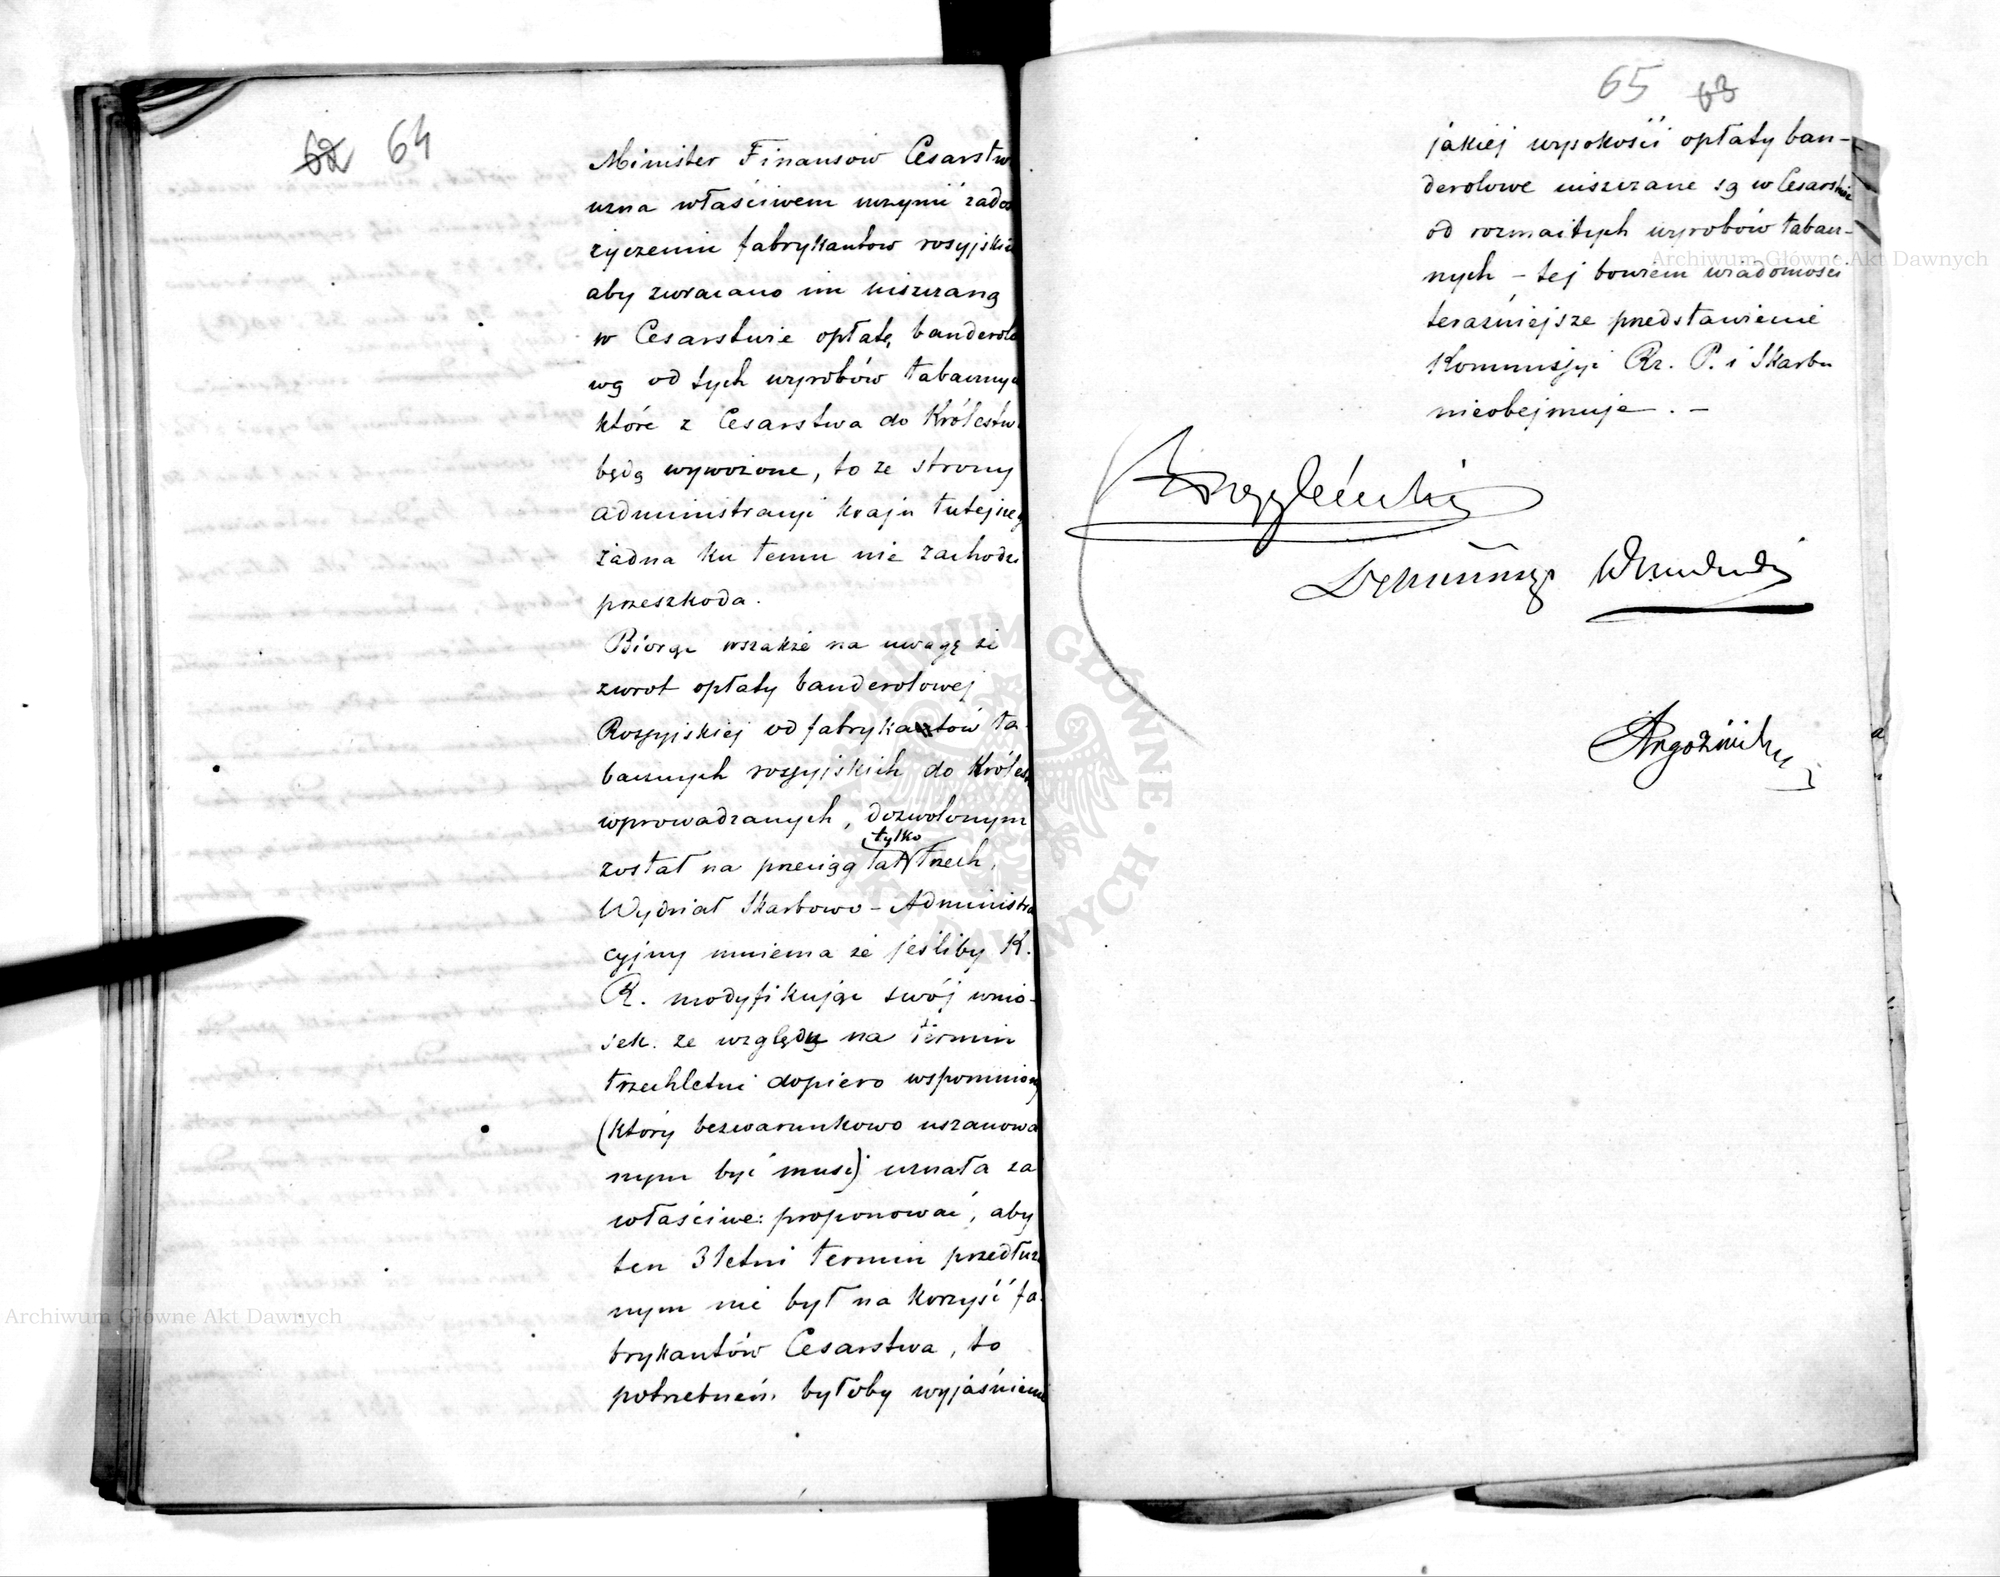 62 64
Minister Finansów Cesarstw
uzna właściwem uczynić zadoś
życzeniu fabrykantów rosyjskich
aby zwracano im uiszczaną
w Cesarstwie opłatę banderolo
wą od tych wyrobów tabacznych
które z Cesarstwa do Królestw
będą wywożone, to ze strony
administracyi kraju tutejszeg
żadna ku temu nie zachodzi
przeszkoda.
Biorąc wszakże na uwagę że
zwrot opłaty banderolowej
Rossyjskiej od fabrykatów ta-
bacznych rossyjskich do Królest
wprowadzanych, dozwolonym
tylko
został na przeciąg lat trzech,
Wydział Skarbowo-Administra
cyjny mniema że jeśliby K.
R. modyfikując swój wnio-
sek ze względu na termin
trzechletni dopiero wspomniony
(który bezwarunkowo uszanowa
nym być musi) uznała za
właściwe: proponować, aby
ten 3letni termin przedłużo
nym nie był na korzyść fa-
brykantów Cesarstwa, to
potrzebnem byłoby wyjaśnienie
65 63
jakiej wysokości opłaty ban-
derolowe uiszczane są w Cesarstwie
od rozmaitych wyrobów tabacz-
nych – tej bowiem wiadomości
teraźniejsze przedstawienie
Kommissyi Rz. P. i Skarbu
nieobejmuje. –
Archiwum Główne Akt Dawnych
Archiwum Główne Akt Dawnych
ARCHIWUM GŁÓWNE AKT DAWNYCH